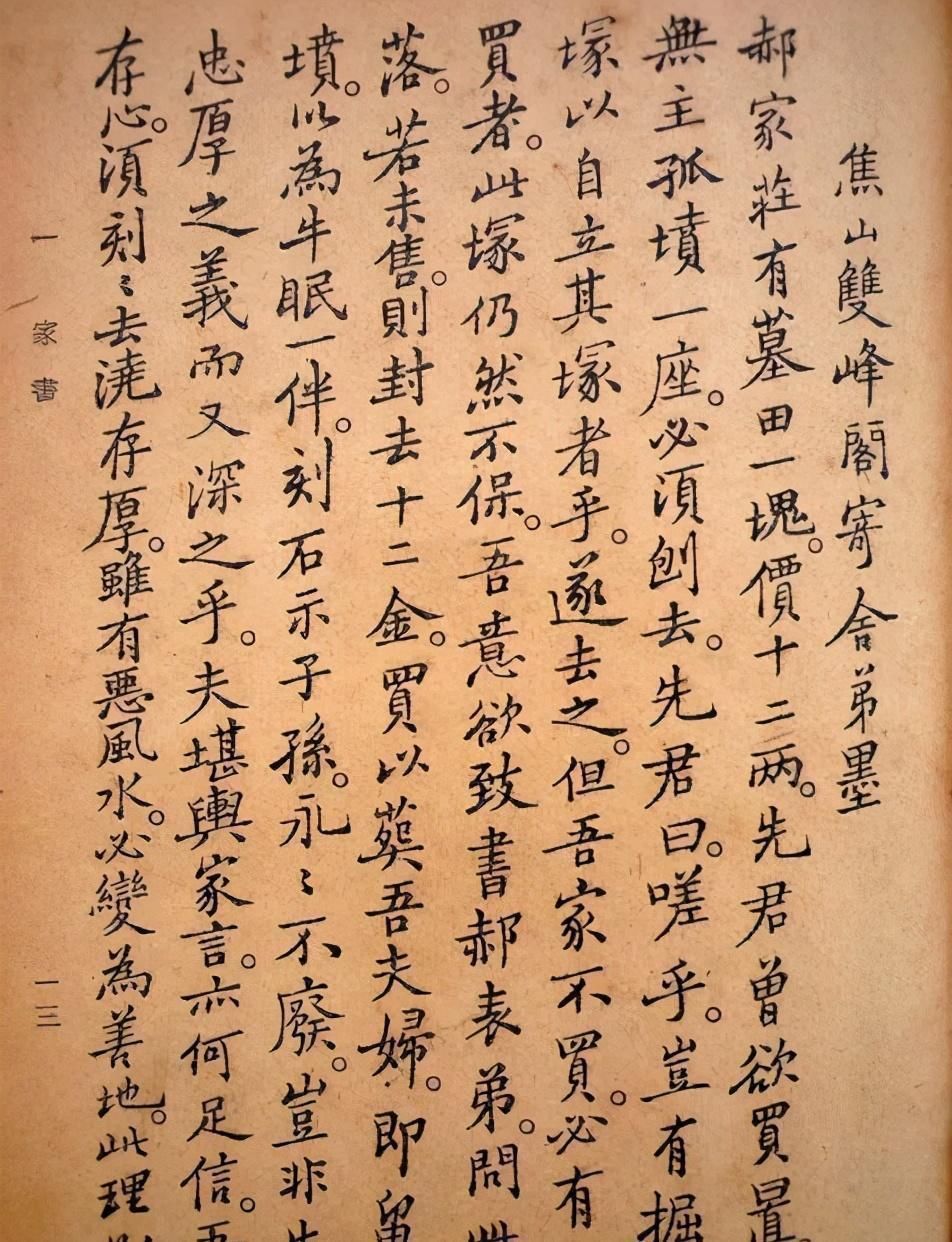 焦山雙峰閣寄舍弟墨
郝家莊有墓田一塊。價十二兩。先君曾欲買置。
無主孤墳一座。必須刨去。先君曰。嗟乎。豈有掘
塚以自立其塚者乎。遂去之。但吾家不買。必有
買者。此塚仍然不保。吾意欲致書郝表弟。問
落。若未售。則封去十二金。買以葬吾夫婦。即留
墳。以為牛眠一伴。刻石示子孫。永〻不廢。豈非
忠厚之義而又深之乎。夫堪輿家言。亦何足信。吾
存心。須刻〻去澆存厚。雖有惡風水。必變為善地。此理
一 家書 一三